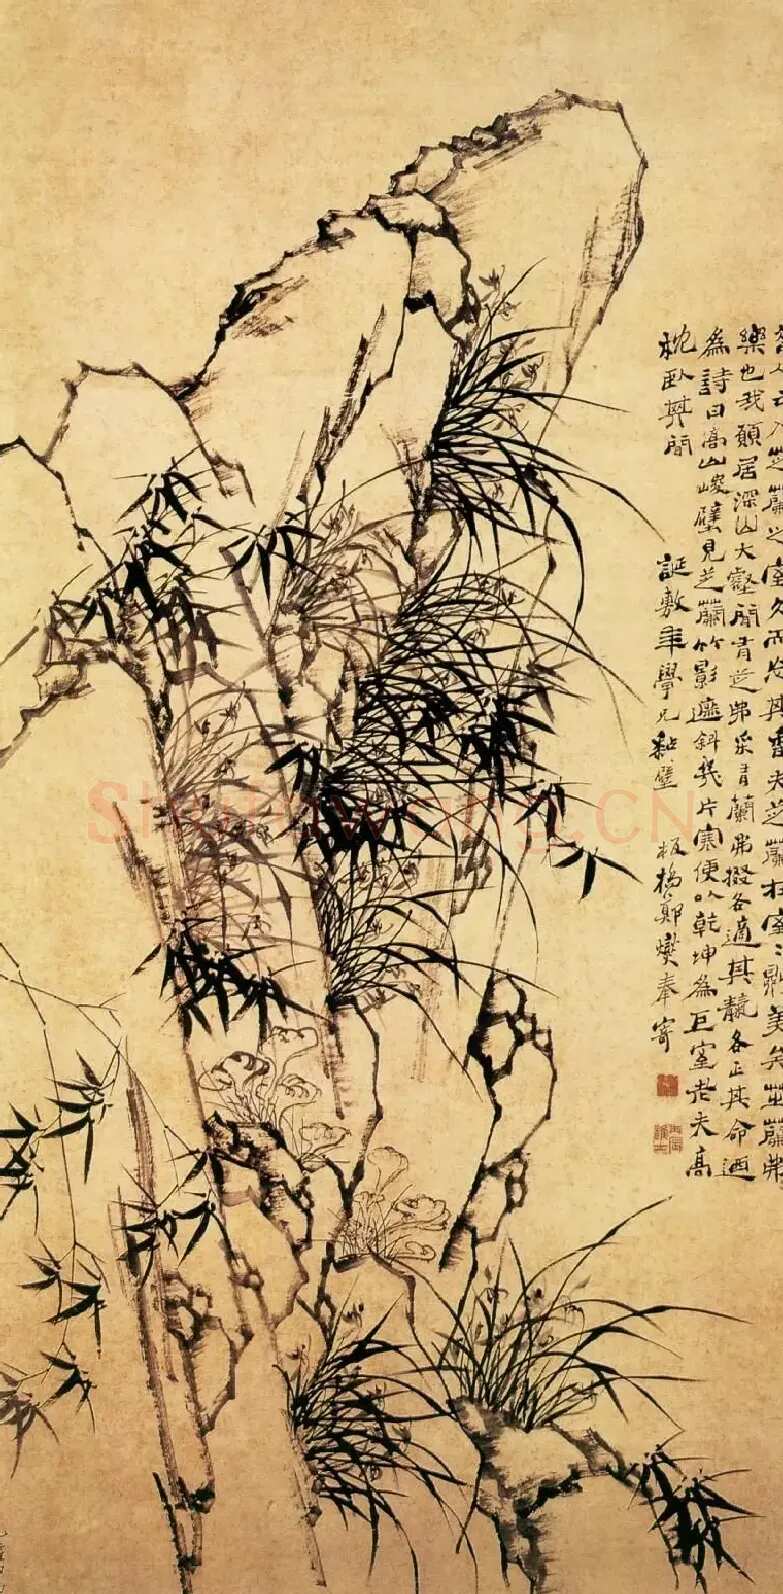 昔人云入芝蘭之室久而忘其香夫芝蘭在室室則美矣芝蘭弗
樂也我願居深山大壑間有芝弗采有蘭弗掇各適其韻各正其命迺
為詩曰高山峻壁見芝蘭竹影遮斜幾片寒便以乾坤為巨室老夫高
枕臥其間
誕敷年學兄粘壁　板橋鄭燮奉寄
Shufawang.CN